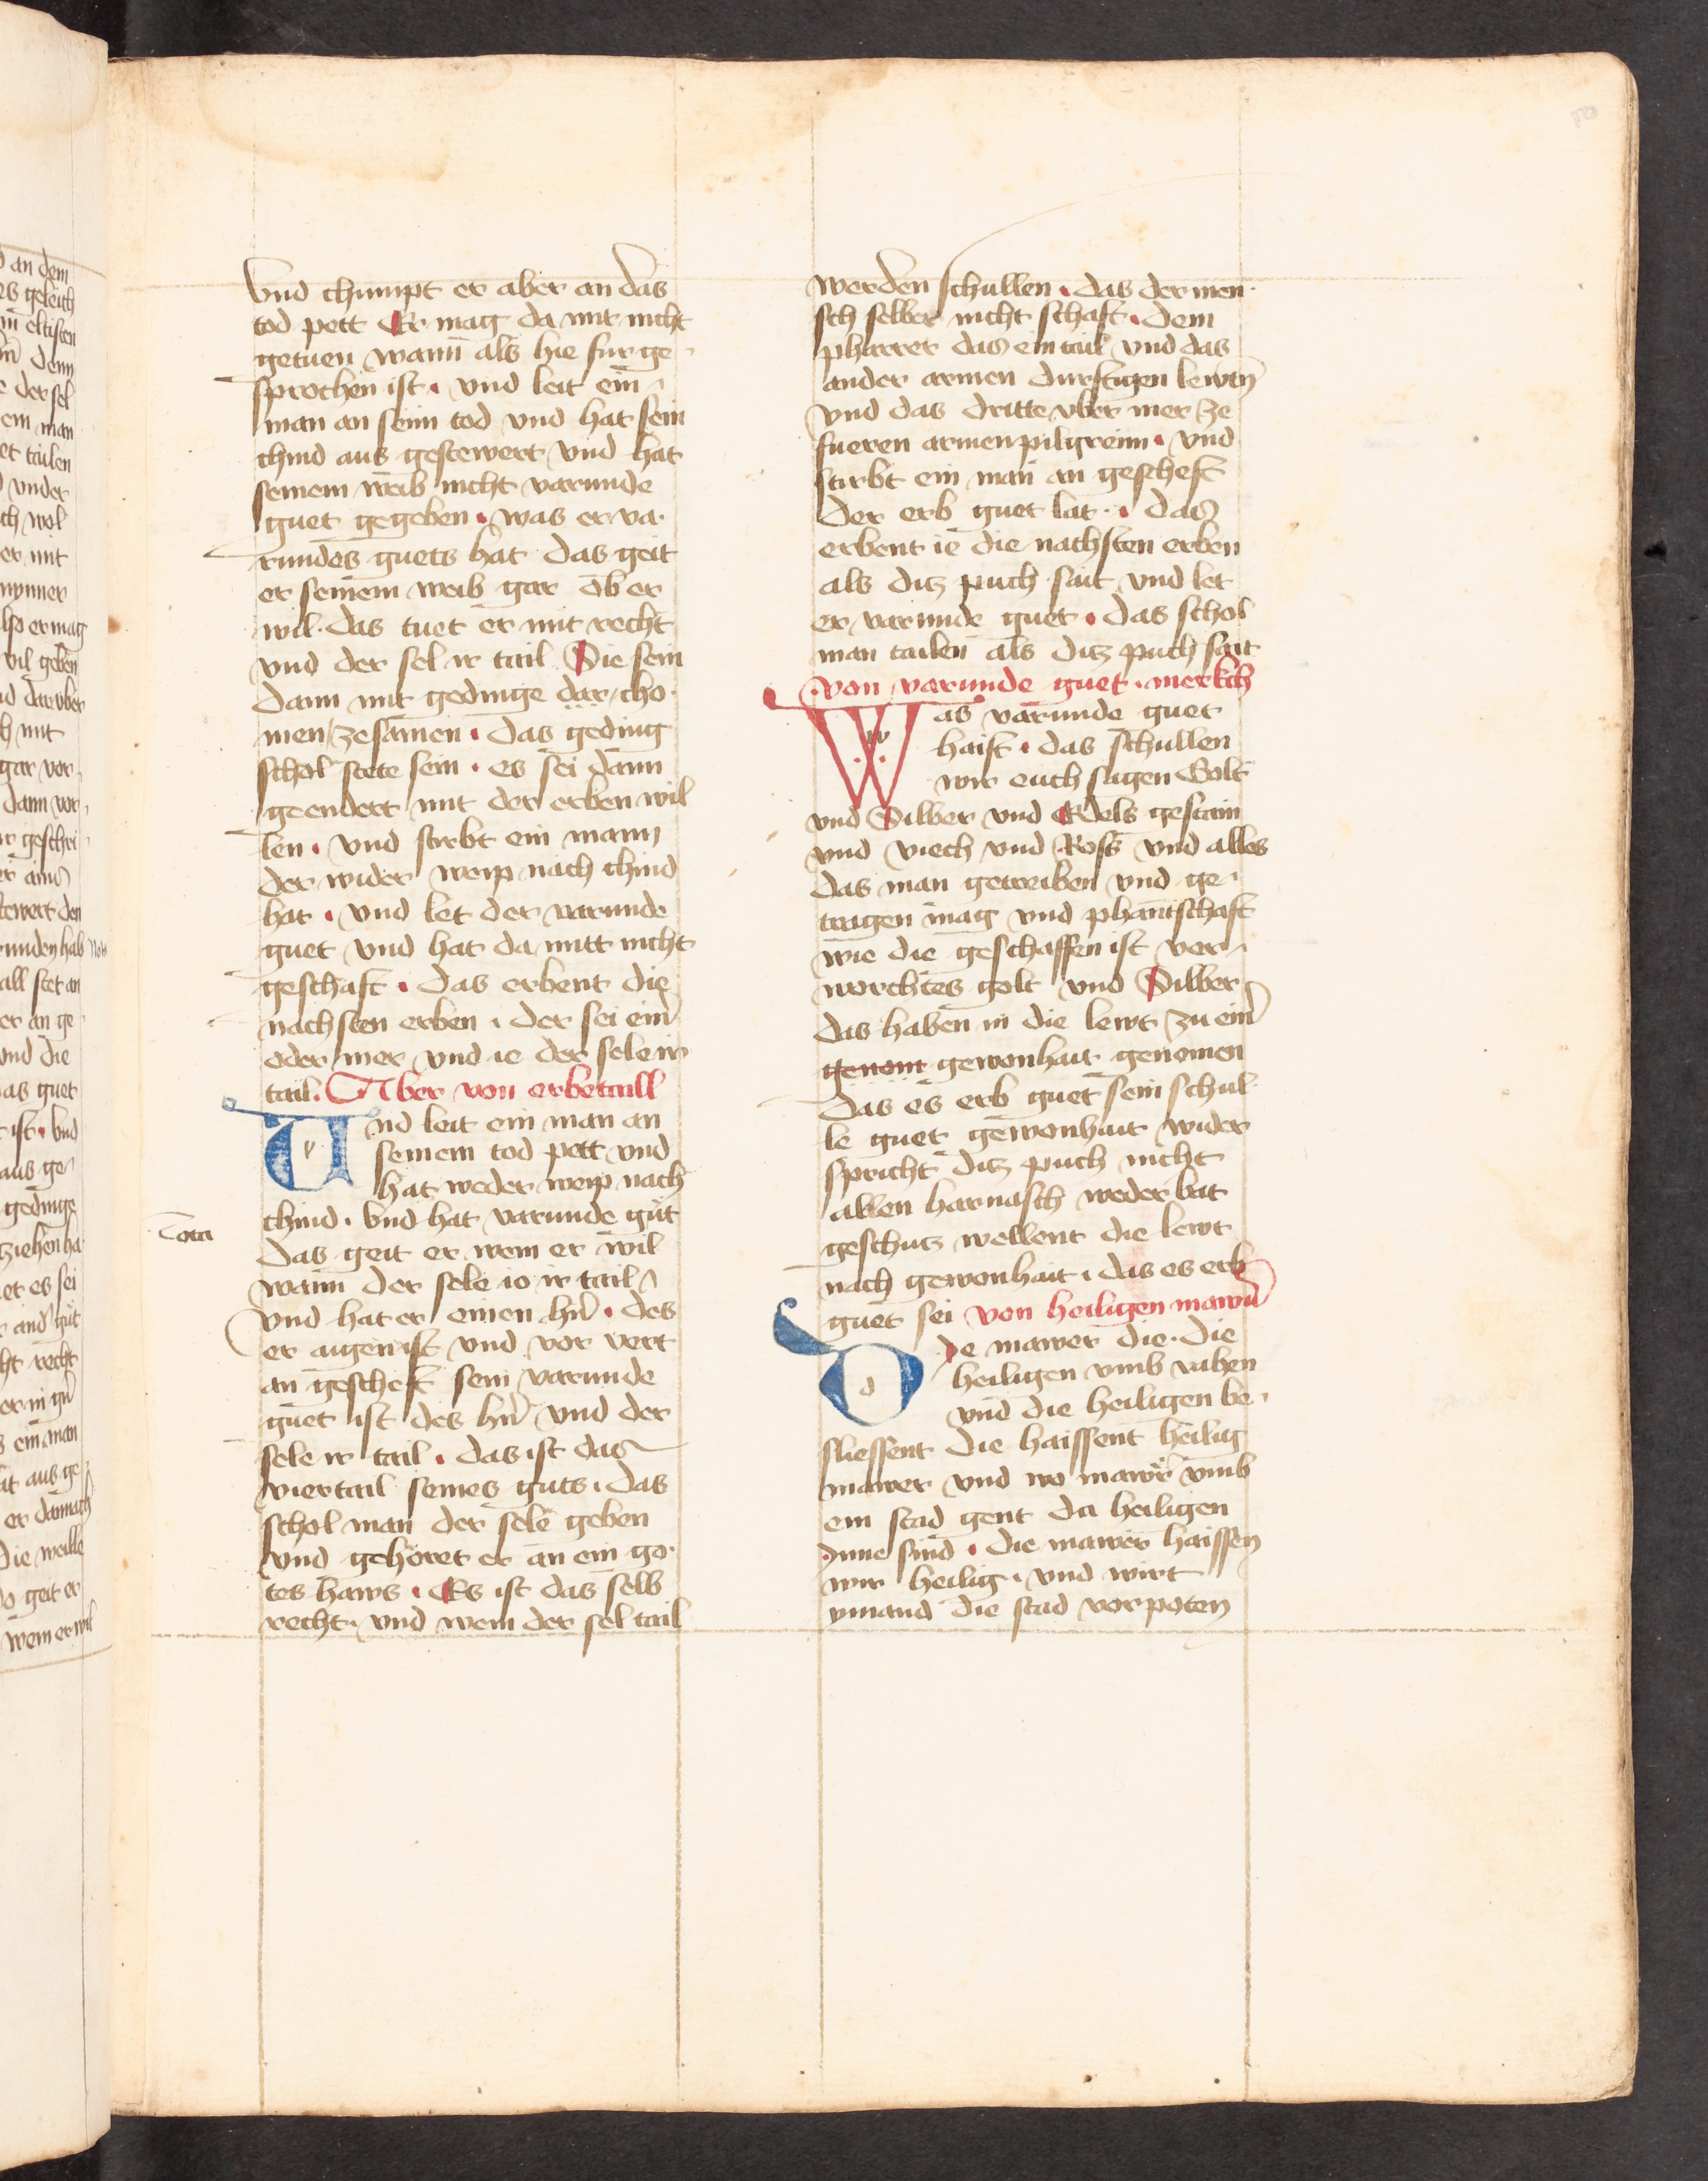 vnd chumpt er aber an das
tod pett Er mag da mit nicht
getuen wann als hie fur ge
sprochen ist · vnd leit ein
man an seim tod vnd hat sein
chind aus gestewert vnd hat
seinem weib nicht varunde
guet gegeben · was er va
rundes guets hat das geit
er seinem weib gar ob er
wil · das tuet er mit recht
vnd der sel ir tail Sie sein
dann mit gedinge dar cho
men zesamen · das geding
schol stete sein · es sei dann
geendert mit der erben wil
len · vnd stirbt ein mann
der wider weip nach chind
hat · vnd let der varunde
guet vnd hat da mitt nicht
geschaft · das erbent die
nachsten erben · der sei ein
oder mer vnd ie der sele ir
tail. Aber von erbetaill
Vnd leit ein man an
seinem tod pett vnd
hat weder weip nach
chind · vnd hat varunde gut
das geit er wem er wil
wann der sele io ir tail
vnd hat er einen hn̄ · des
er aigen ist vnd vor vert
an gescheft sein varunde
guet ist des hn̄ vnd der
sele ir tail · das ist das
viertail seines guts · das
schol man der sele geben
vnd gehöret er an ein go
tes haws · Es ist das selb
recht · vnd wem der sel tail
werden schullen · das der men
sch selber nicht schaft · dem
pharrer das ein tail vnd das
ander armen durftigen lewtn̄
vnd das dritte vber mer ze
fueren armen pilgreim · vnd
stirbt ein man an gescheft
der erb guet lat · das
erbent ie die nachsten erben
als ditz puch sait vnd let
er varunde guet · das schol
man tailen als ditz puch sait
von varunde guet · merkch
Was varunde guet
haist · das schullen
wir euch sagen Golt
vnd Silber vnd Edels gestain
vnd viech vnd Ross vnd alles
das man getreiben vnd ge
tragen mag vnd phantschaft
wie die geschaffen ist ver
worchtes golt vnd Silber
das haben in die lewt zu ein
genom gewonhait genomen
das es erb guet sein schul
le guet gewonhait wider
spricht ditz puch nicht
allen harnasch weder bat
geschutz wellent die lewt
nach gewonhait · das es erb
guet sei von heiligen mawrn̄
De mawer die · die
heiligen vmb vaben
vnd die heiligen be
sliessent die haissent heilig
mawer vnd wo mawer vmb
ein stad gent da heiligen
Inne sind · die mawer haissen
wir heilig · vnd wirt
ymand die stad vorpoten